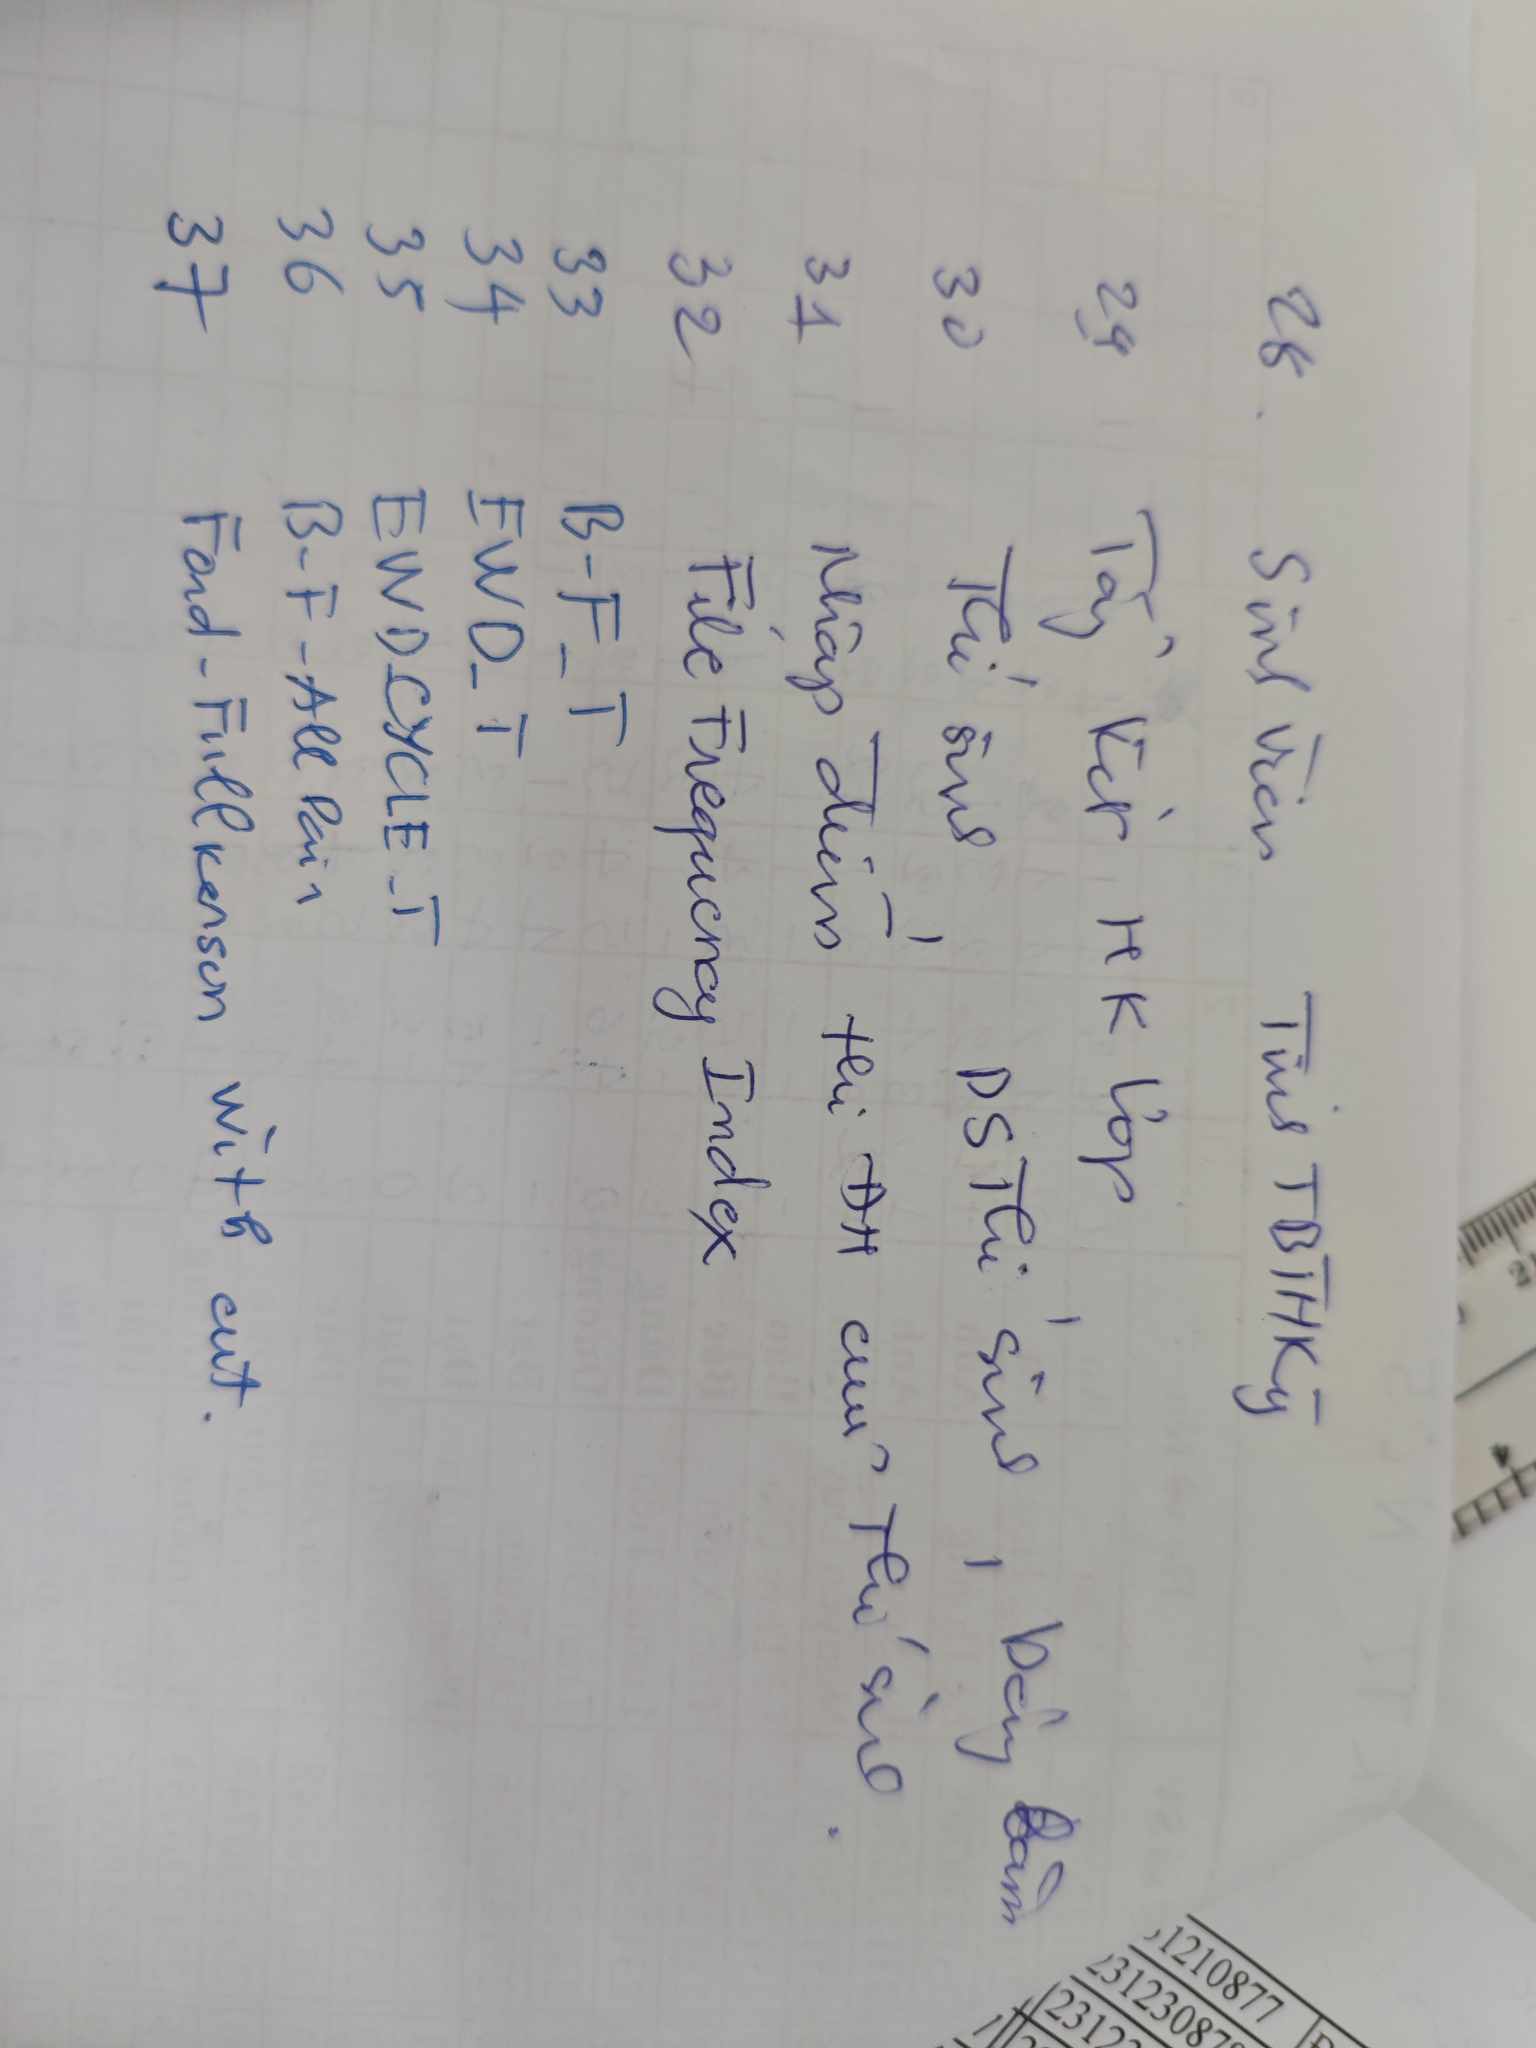 28. Sinh viên Tính TBTHKỳ
29 Tổng kết HK lớp
30 Thí sinh, DS Thí sinh, bảng điểm
31 Nhập điểm thi ĐH của Thí sinh.
32 File Frequency Index
33 B-F_T
34 EWD_T
35 EWD_CYCLE_T
36 B-F-All Pair
37 Ford-Fullkerson with cut.
2
4
1210877
2312308
2312